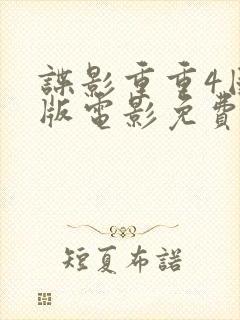 諜影重重4
版電影免費
短夏布諾